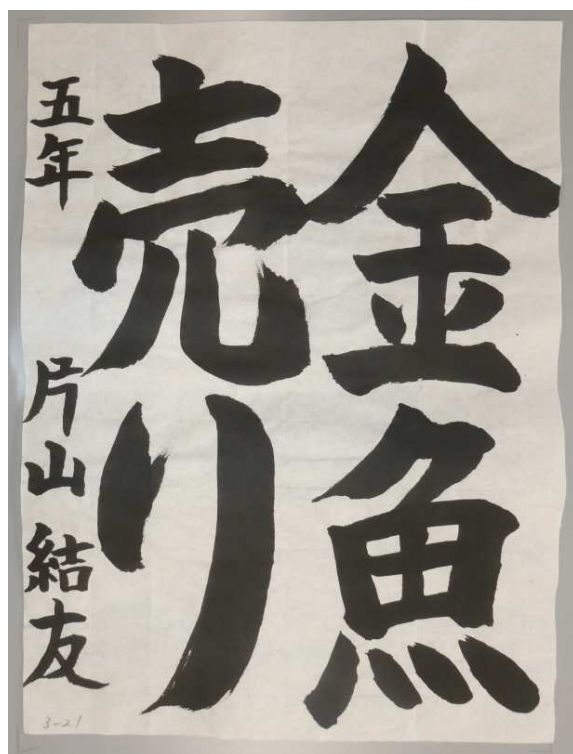 金魚
売り
五年 片山結友
3-21